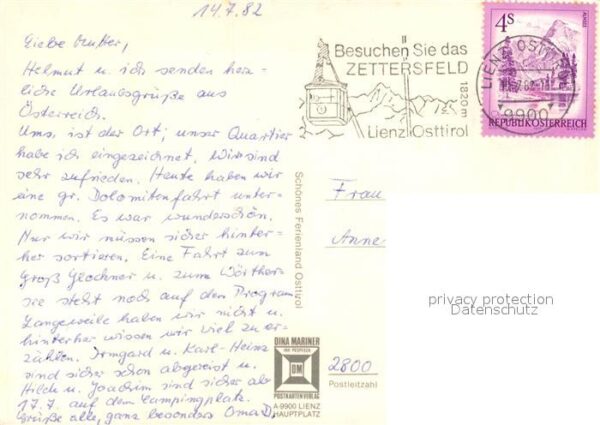 14.7.82
Liebe Mutter,
Helmut u. ich senden herz-
liche Urlaubsgrüße aus
Österreich.
Ums. ist der Ort; unser Quartier
habe ich eingezeichnet. Wir sind
sehr zufrieden. Heute haben wir
eine gr. Dolomitenfahrt unter-
nommen. Es war wunderschön.
Nur wir müssen sicher hinter-
her sortieren. Eine Fahrt zum
Groß Glockner u. zum Wörther-
see steht noch auf dem Program
Langeweile haben wir nicht u.
hinterher wissen wir viel zu er-
zählen. Irmgard u. Karl-Heinz
sind sicher schon abgereist u.
Hilde u. Joachim sind sicher ab
17.7. auf dem Campingplatz.
Grüße alle, ganz besonders Oma D.
Besuchen Sie das
ZETTERSFELD
1820m
Lienz Osttirol
4S
REPUBLIK ÖSTERREICH
LIENZ, OSTTI
9900
Schönes Ferienland Osttirol
Frau
Anne
privacy protection
Datenschutz
DINA MARINER
DM
POSTKARTENVERLAG
A-9900 LIENZ
HAUPTPLATZ
2800
Postleitzahl